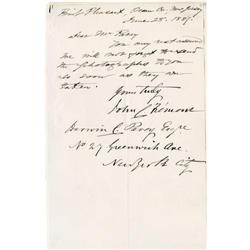 Point Pleasant, Ocean Co. New Jersey
June 25. 1889.
Dear Mr. Percy
You may rest assured
we will not forget to send
the photographs to you
as soon as they are
taken.
Yours truly
John C Fremont
C. Percy Esqre
No 27 Greenwich Ave.
New York City